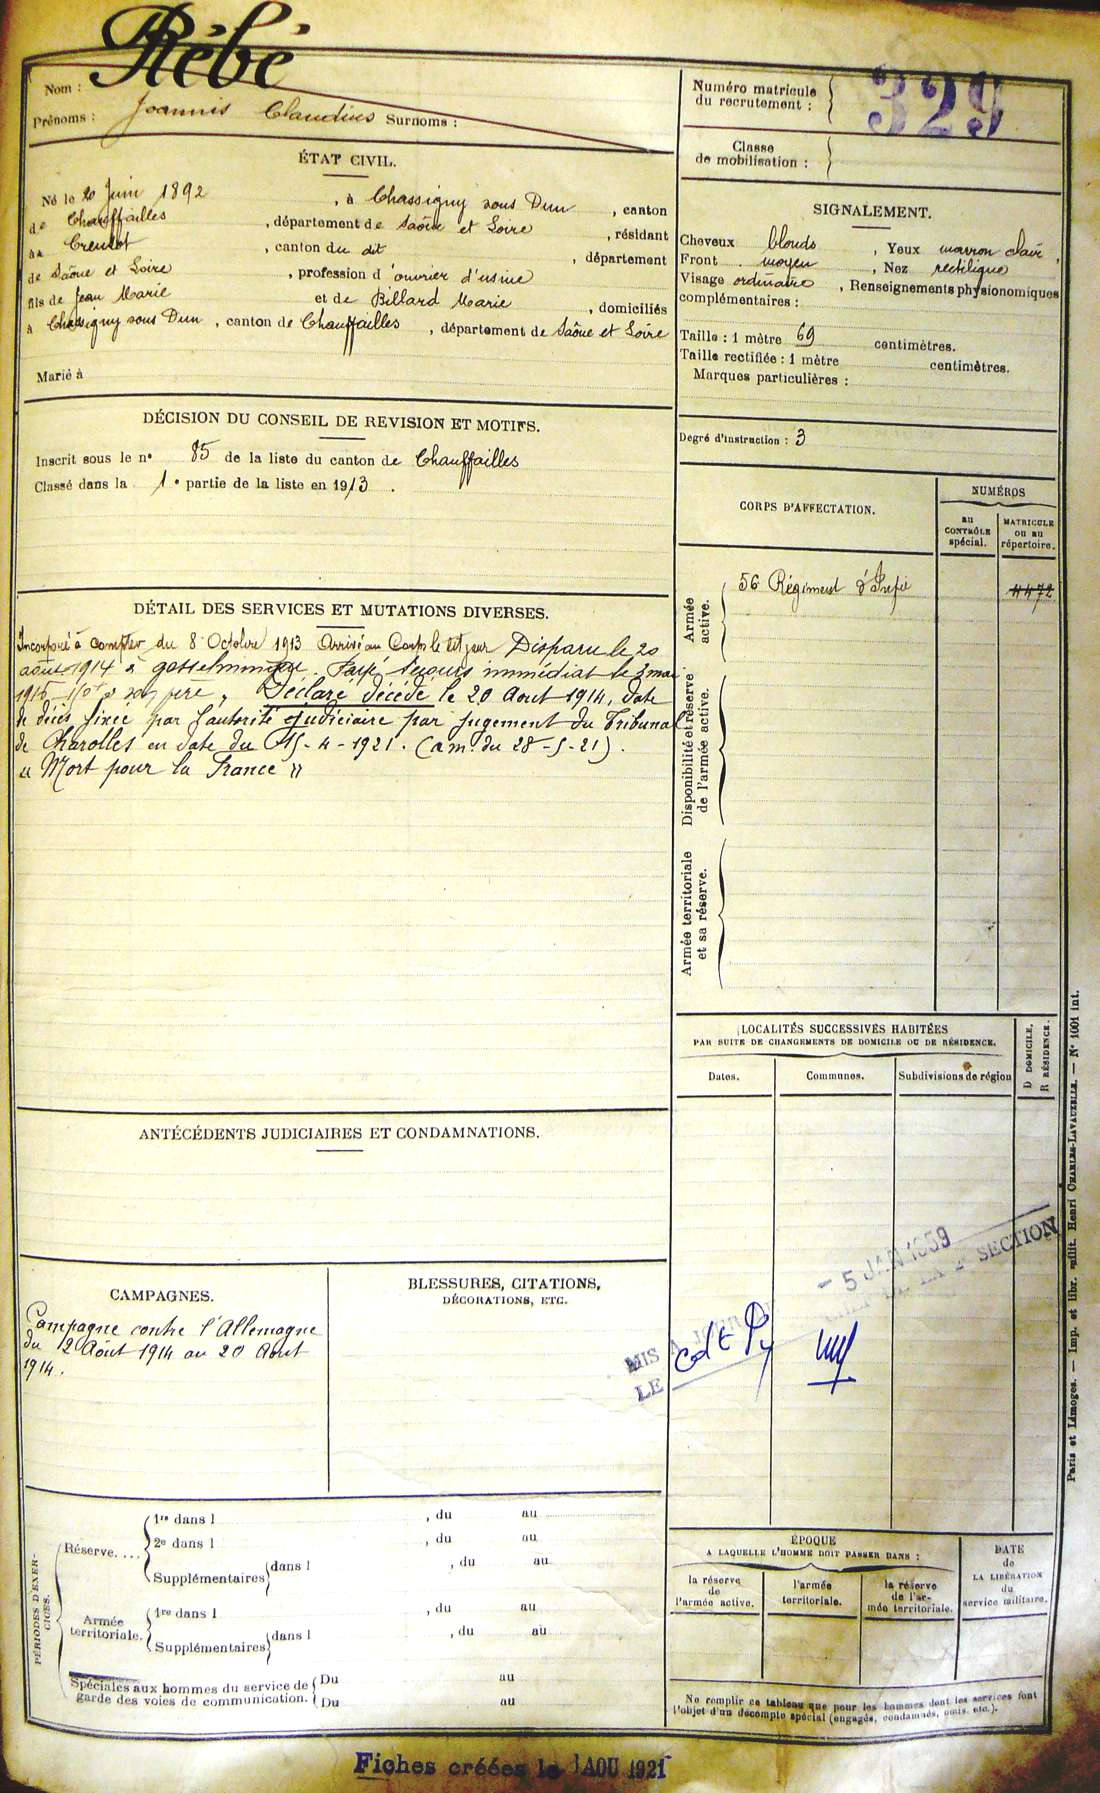 Rébé
Nom :
Prénoms : Joannis Claudius Surnoms :
Numéro matricule
du recrutement :
329
Classe
de mobilisation :
ÉTAT CIVIL.
Né le 20 Juin 1892, à Chassigny sous Dun, canton
de Chauffailles, département de Saône et Loire, résidant
à Creusot, canton du dit, département
de Saône et Loire, profession d'ouvrier d'usine
fils de Jean Marie et de Billard Marie, domiciliés
à Chassigny sous Dun, canton de Chauffailles, département de Saône et Loire
Marié à
SIGNALEMENT.
Cheveux blonds, Yeux marron clair,
Front moyen, Nez rectiligne
Visage ordinaire, Renseignements physionomiques
complémentaires :
Taille : 1 mètre 69 centimètres.
Taille rectifiée : 1 mètre centimètres.
Marques particulières :
Degré d'instruction : 3
DÉCISION DU CONSEIL DE REVISION ET MOTIFS.
Inscrit sous le n° 85 de la liste du canton de Chauffailles
Classé dans la 1e partie de la liste en 1913.
CORPS D'AFFECTATION.
NUMÉROS
au
CONTRÔLE
spécial.
MATRICULE
ou au
répertoire.
Armée
active.
56 Régiment d'Infie
4472
Disponibilité et réserve
de l'armée active.
Armée territoriale
et sa réserve.
DÉTAIL DES SERVICES ET MUTATIONS DIVERSES.
Incorporé à compter du 8 Octobre 1913 Arrivé au Corps le dit jour Disparu le 20
août 1914 à Payé Secours immédiat le 3 mai
1916 père. Déclaré décédé le 20 Aout 1914, date
de décès fixée par l'autorité judiciaire par jugement du Tribunal
de Charolles en date du 15-4-1921. (am. du 28-5-21).
"Mort pour la France"
LOCALITÉS SUCCESSIVES HABITÉES
PAR SUITE DE CHANGEMENTS DE DOMICILE OU DE RÉSIDENCE.
Dates.
Communes.
Subdivisions de région
D DOMICILE.
R RÉSIDENCE.
ANTÉCÉDENTS JUDICIAIRES ET CONDAMNATIONS.
CAMPAGNES.
Campagne contre l'Allemagne
du 12 Août 1914 au 20 Aout
1914.
BLESSURES, CITATIONS,
DÉCORATIONS, ETC.
MIS A JOUR
LE
- 5 JAN 1959
LA 2e SECTION
PÉRIODES D'EXER-
CICES.
Réserve....
1re dans l , du au
2e dans l , du au
Supplémentaires dans l , du au
Armée
territoriale.
1re dans l , du au
Supplémentaires dans l , du au
Spéciales aux hommes du service de
garde des voies de communication.
Du au
Du au
ÉPOQUE
A LAQUELLE L'HOMME DOIT PASSER DANS :
la réserve
de
l'armée active.
l'armée
territoriale.
la réserve
de l'ar-
mée territoriale.
DATE
de
LA LIBÉRATION
du
service militaire.
Ne remplir ce tableau que pour les hommes dont les services font
l'objet d'un décompte spécial (engagés, condamnés, omis, etc.).
Paris et Limoges. — Imp. et libr. milit. Henri CHARLES-LAVAUZELLE. — N° 1001 int.
Fiches créées le 1 AOU 1921